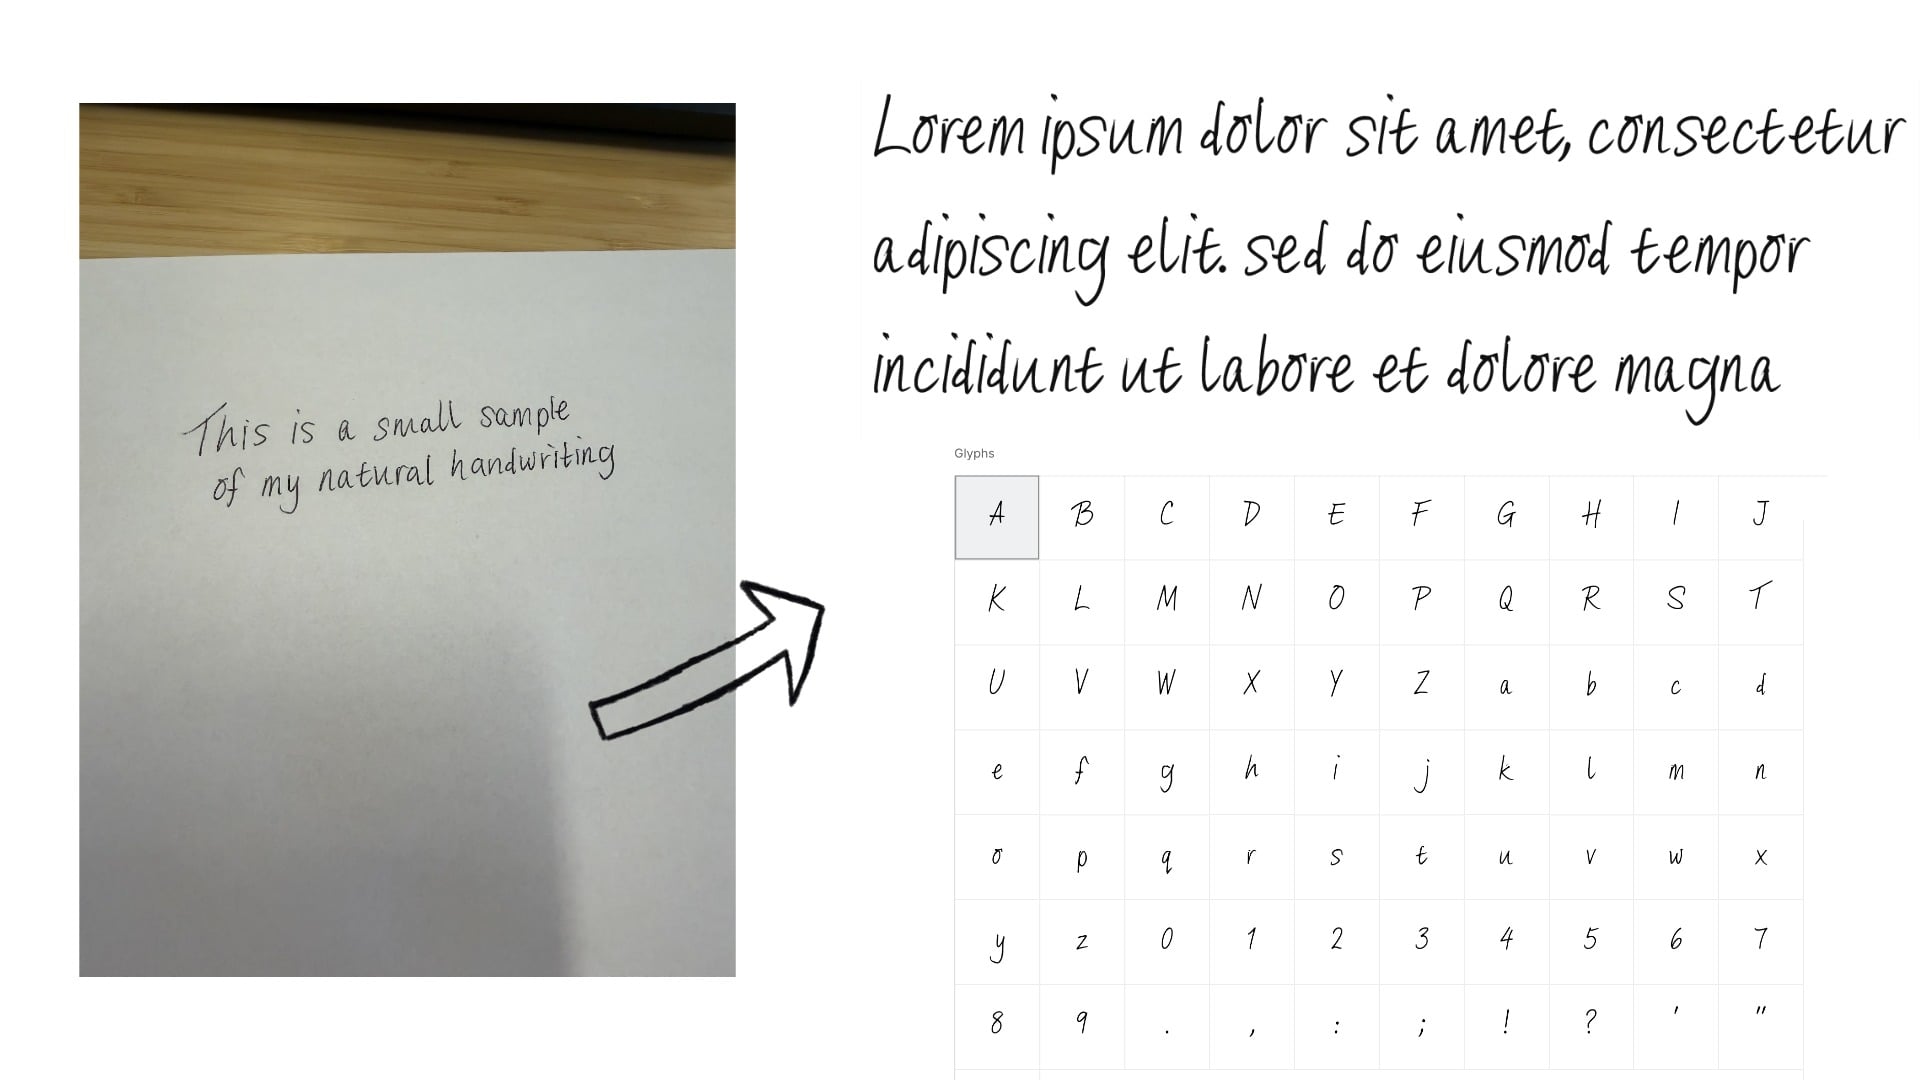 This is a small sample
of my natural handwriting
Lorem ipsum dolor sit amet, consectetur
adipiscing elit. sed do eiusmod tempor
incididunt ut labore et dolore magna
Glyphs
A B C D E F G H I J
K L M N O P Q R S T
U V W X Y Z a b c d
e f g h i j k l m n
o p q r s t u v w x
y z 0 1 2 3 4 5 6 7
8 9 . , : ; ! ? ' "